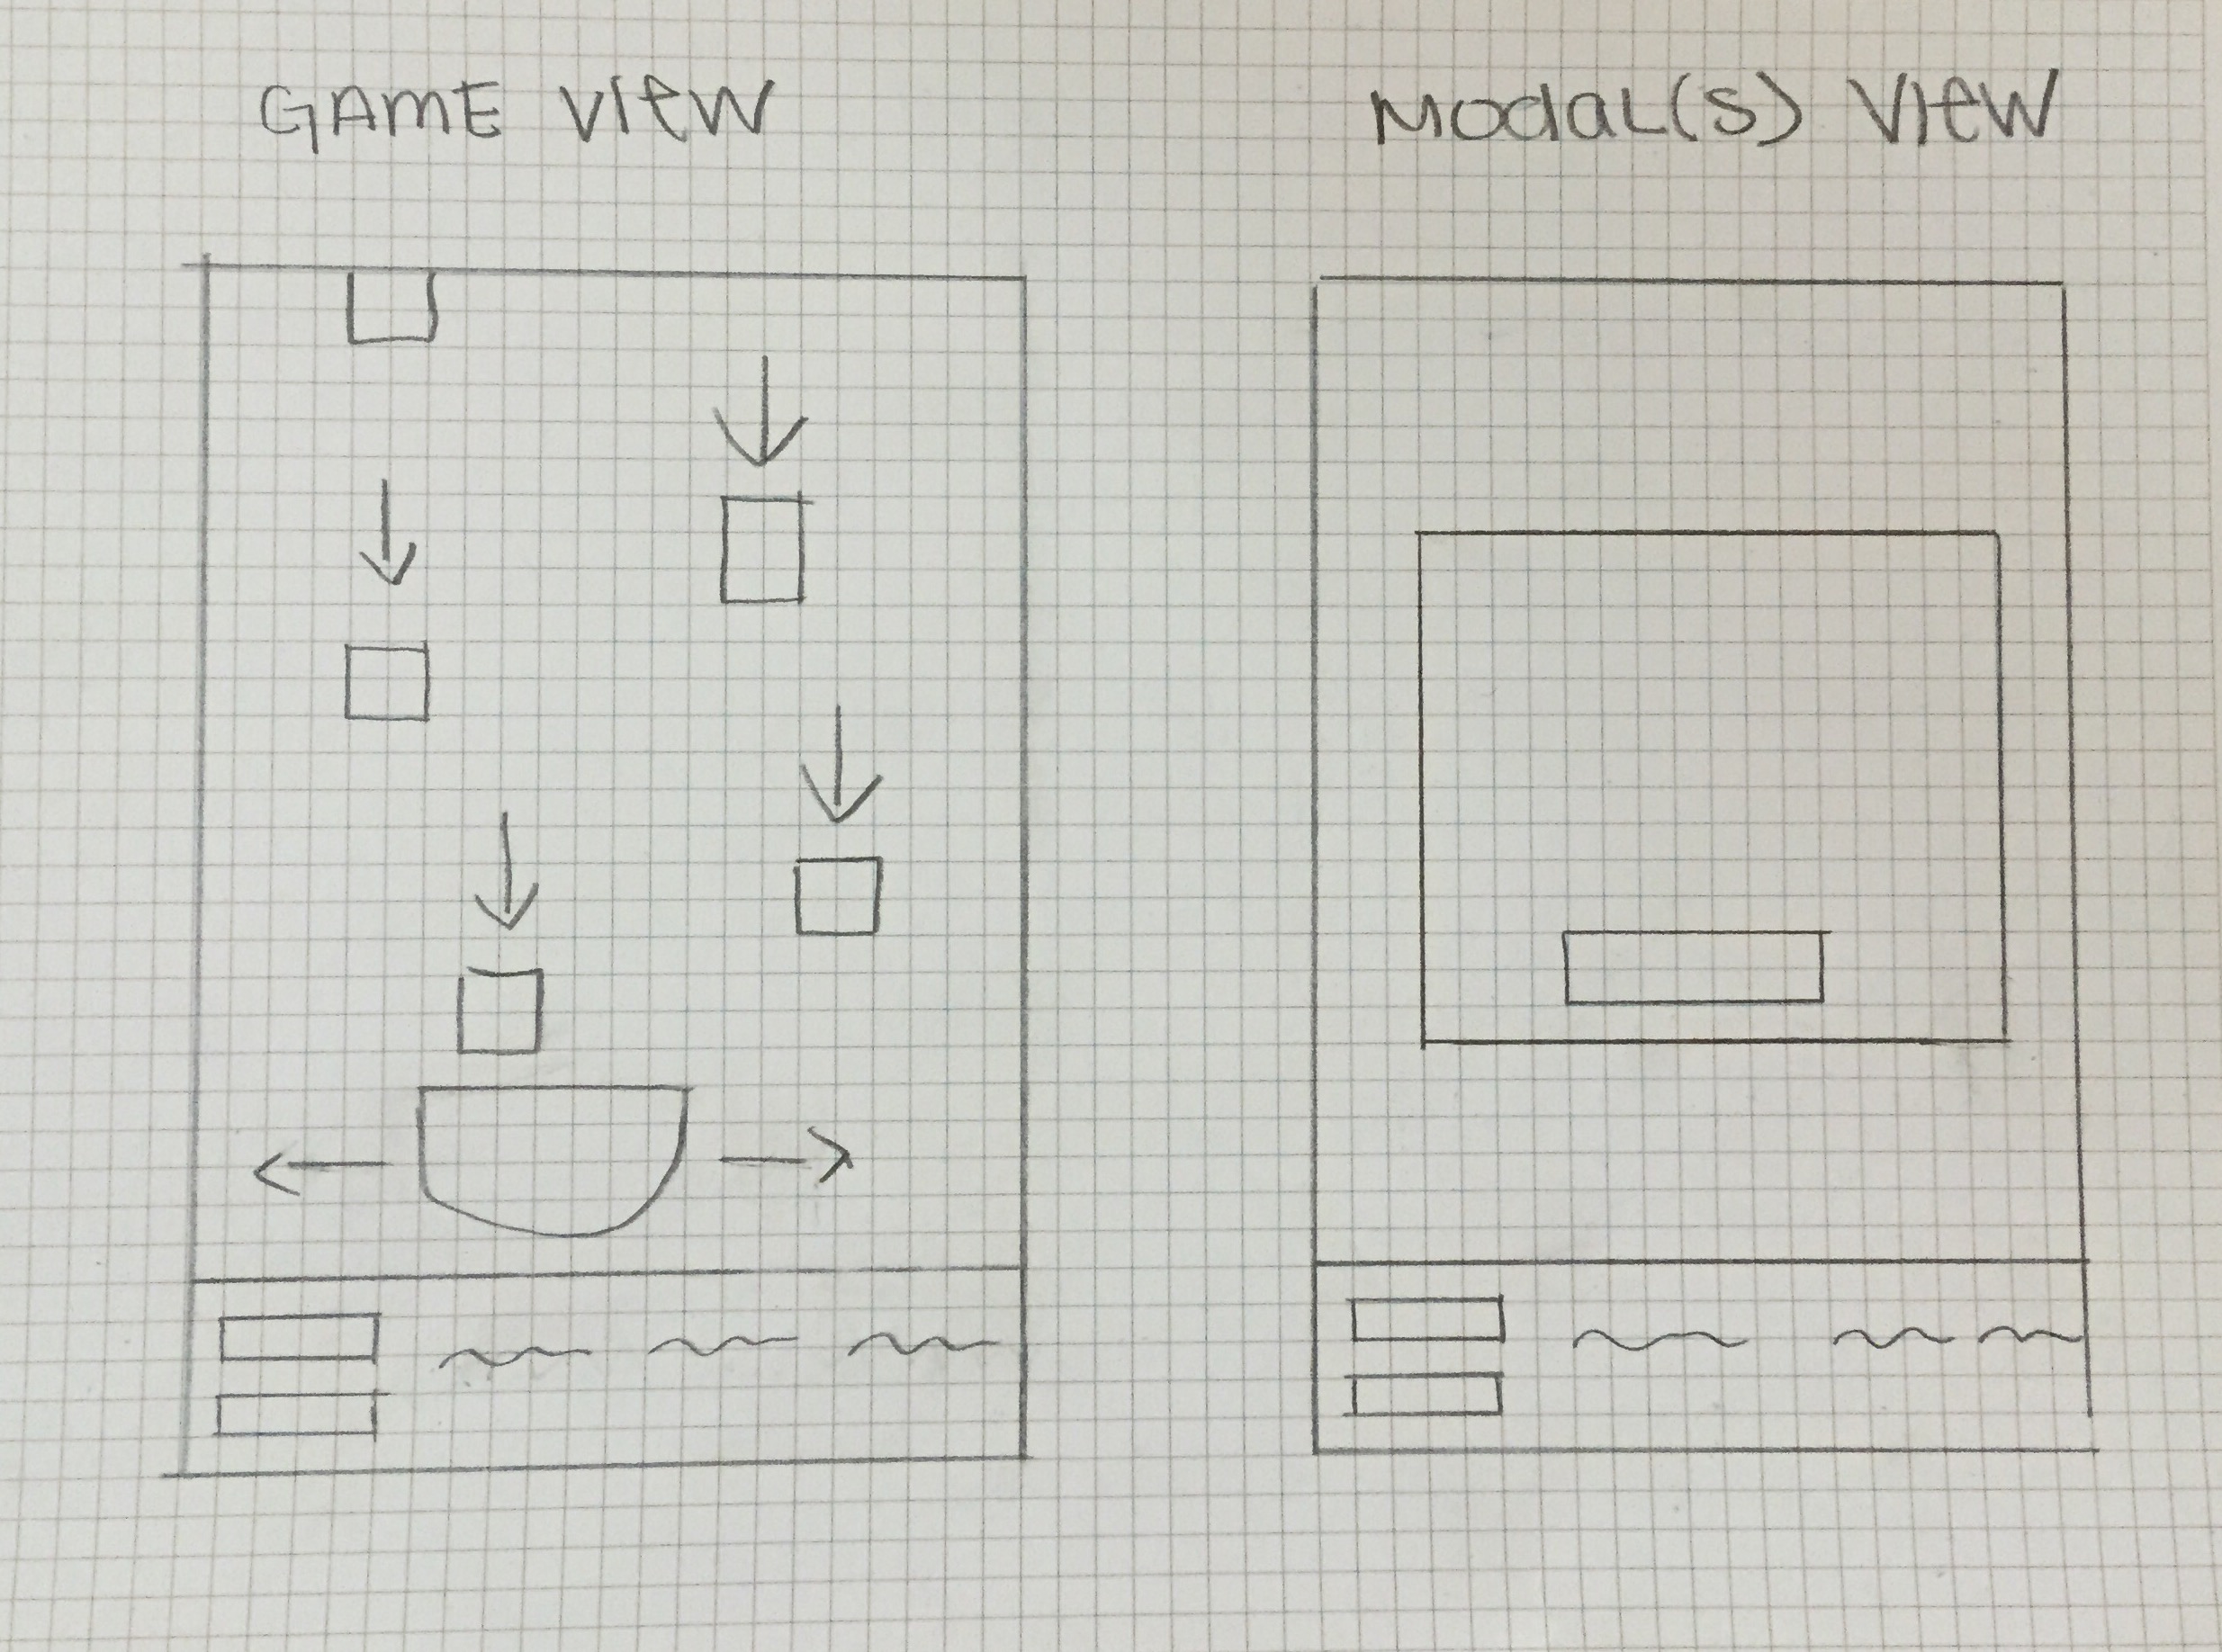 GAME VIEW
MODAL(S) VIEW